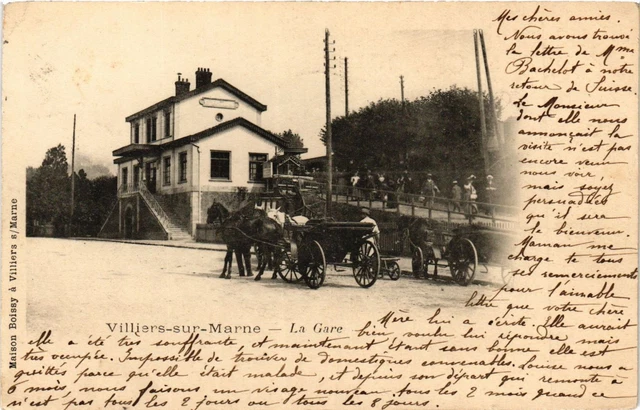 Mes chères amies.
Nous avons trouvé
la lettre de Mme
Bachelot à notre
retour de Suisse.
Le Monsieur
dont elle nous
annonçait la
visite n'est pas
encore venu
nous voir,
mais soyez
persuadées
qu'il sera
le bienvenu.
Maman me
charge te tous
ses remerciements
pour l'aimable
lettre que votre chère
Mère lui a écrite. Elle aurait
bien voulu lui répondre mais
elle a été très souffrante, et maintenant étant sans bonne elle est
très occupée. Impossible de trouver de domestiques convenables. Louise nous a
quittées parce qu'elle était malade, et depuis son départ qui remonte à
6 mois, nous faisons un visage nouveau tous les 2 mois quand ce
n'est pas tous les 2 jours ou tous les 8 jours.
Villiers-sur-Marne – La Gare
Maison Boissy à Villiers s/Marne